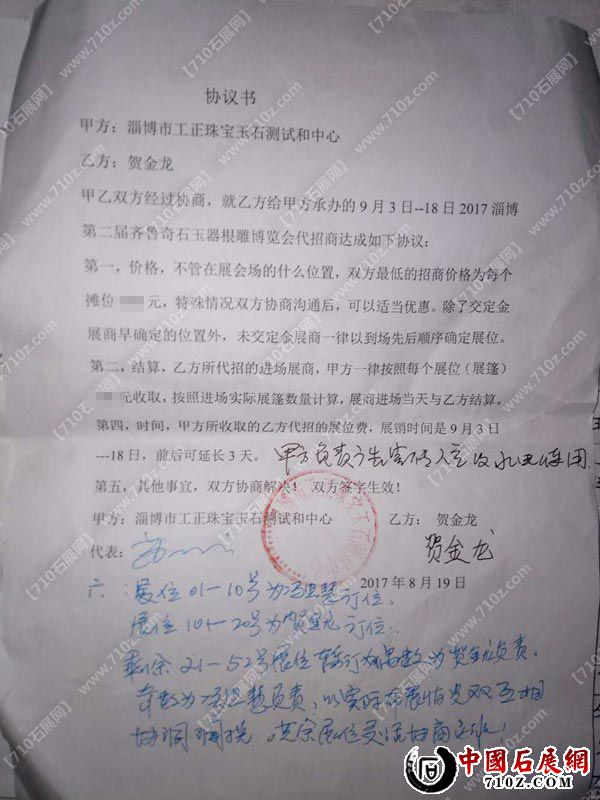 协议书
甲方：淄博市工正珠宝玉石测试和中心
乙方：贺金龙
甲乙双方经过协商，就乙方给甲方承办的9月3日--18日2017淄博
第二届齐鲁奇石玉器根雕博览会代招商达成如下协议：
第一，价格，不管在展会场的什么位置，双方最低的招商价格为每个
摊位 元，特殊情况双方协商沟通后，可以适当优惠。除了交定金
展商早确定的位置外，未交定金展商一律以到场先后顺序确定展位。
第二，结算，乙方所代招的进场展商，甲方一律按照每个展位（展篷）
元收取，按照进场实际展篷数量计算，展商进场当天与乙方结算。
第四，时间，甲方所收取的乙方代招的展位费，展销时间是9月3日
---18日，前后可延长3天。甲方负责
第五，其他事宜，双方协商解决！双方签字生效！
甲方：淄博市工正珠宝玉石测试和中心 乙方： 贺金龙
代表： 贺金龙
2017年8月19日
六 展位01-10号为 订位、
展位 -20号为贺金龙订位、
剩余21-52号展位 为贺金龙负责．
负责，以实际 双互相
协同 。其余展位灵活协商
中國石展網
710Z.COM
【710石展网】
www.710z.com